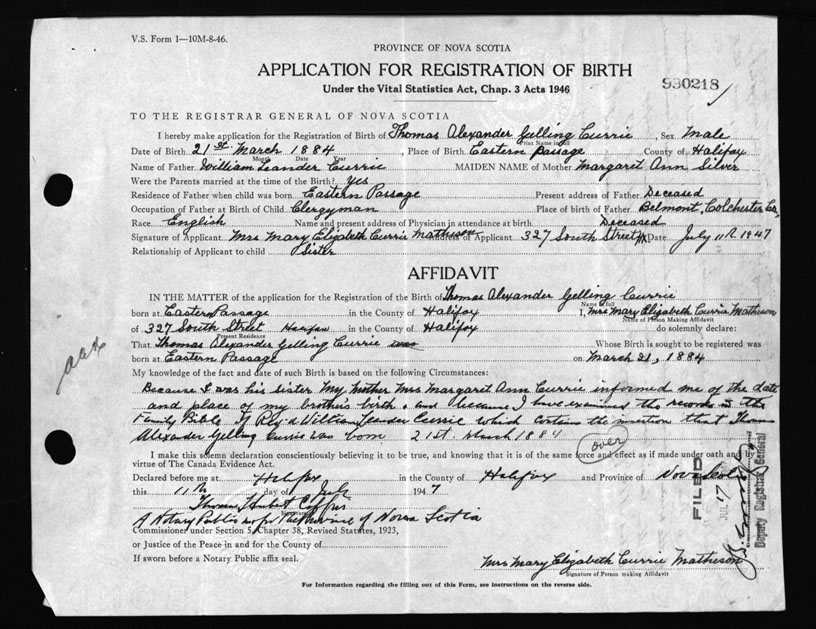 V.S. Form 1—10M-8-46.
PROVINCE OF NOVA SCOTIA
APPLICATION FOR REGISTRATION OF BIRTH
930218
Under the Vital Statistics Act, Chap. 3 Acts 1946
TO THE REGISTRAR GENERAL OF NOVA SCOTIA
I hereby make application for the Registration of Birth of Thomas Alexander Gelling Currie, Sex Male
Print Name in full
Date of Birth 21st March 1884, Place of Birth Eastern Passage County of Halifax
Month Date Year
Name of Father William Leander Currie MAIDEN NAME of Mother Margaret Ann Silver
Were the Parents married at the time of the Birth? Yes
Residence of Father when child was born Eastern Passage Present address of Father Deceased
Occupation of Father at Birth of Child Clergyman Place of birth of Father Belmont, Colchester Co,
Race English Name and present address of Physician in attendance at birth Deceased
Signature of Applicant Mrs Mary Elizabeth Currie Matheson Address of Applicant 327 South Street Hx Date July 11th 1947
Relationship of Applicant to child Sister
AFFIDAVIT
IN THE MATTER of the application for the Registration of the Birth of Thomas Alexander Gelling Currie
Name in full
born at Eastern Passage in the County of Halifax I, Mrs Mary Elizabeth Currie Matheson
Name of Person Making Affidavit
of 327 South Street Halifax in the County of Halifax do solemnly declare:
Present Residence
That Thomas Alexander Gelling Currie was Whose Birth is sought to be registered was
born at Eastern Passage on March 21, 1884
My knowledge of the fact and date of such Birth is based on the following Circumstances:
Because I was his sister My Mother Mrs Margaret Ann Currie informed me of the date
and place of my brother's birth, and because I have examined the records in the
Family Bible of Rev'd William Leander Currie which contains the insertion that Thomas
Alexander Gelling Currie was born 21st. March 1884
over
I make this solemn declaration conscientiously believing it to be true, and knowing that it is of the same force and effect as if made under oath and by
virtue of The Canada Evidence Act.
Declared before me at Halifax in the County of Halifax and Province of Nova Scotia
this 11th day of July 1947
Thomas Hubert Coffin
A Notary Public in & for the Province of Nova Scotia
Commissioner under Section 5, Chapter 38, Revised Statutes, 1923,
or Justice of the Peace in and for the County of
If sworn before a Notary Public affix seal.
Mrs Mary Elizabeth Currie Matheson
Signature of Person making Affidavit
For Information regarding the filling out of this Form, see instructions on the reverse side.
FILED
JUL 17
Deputy Registrar General